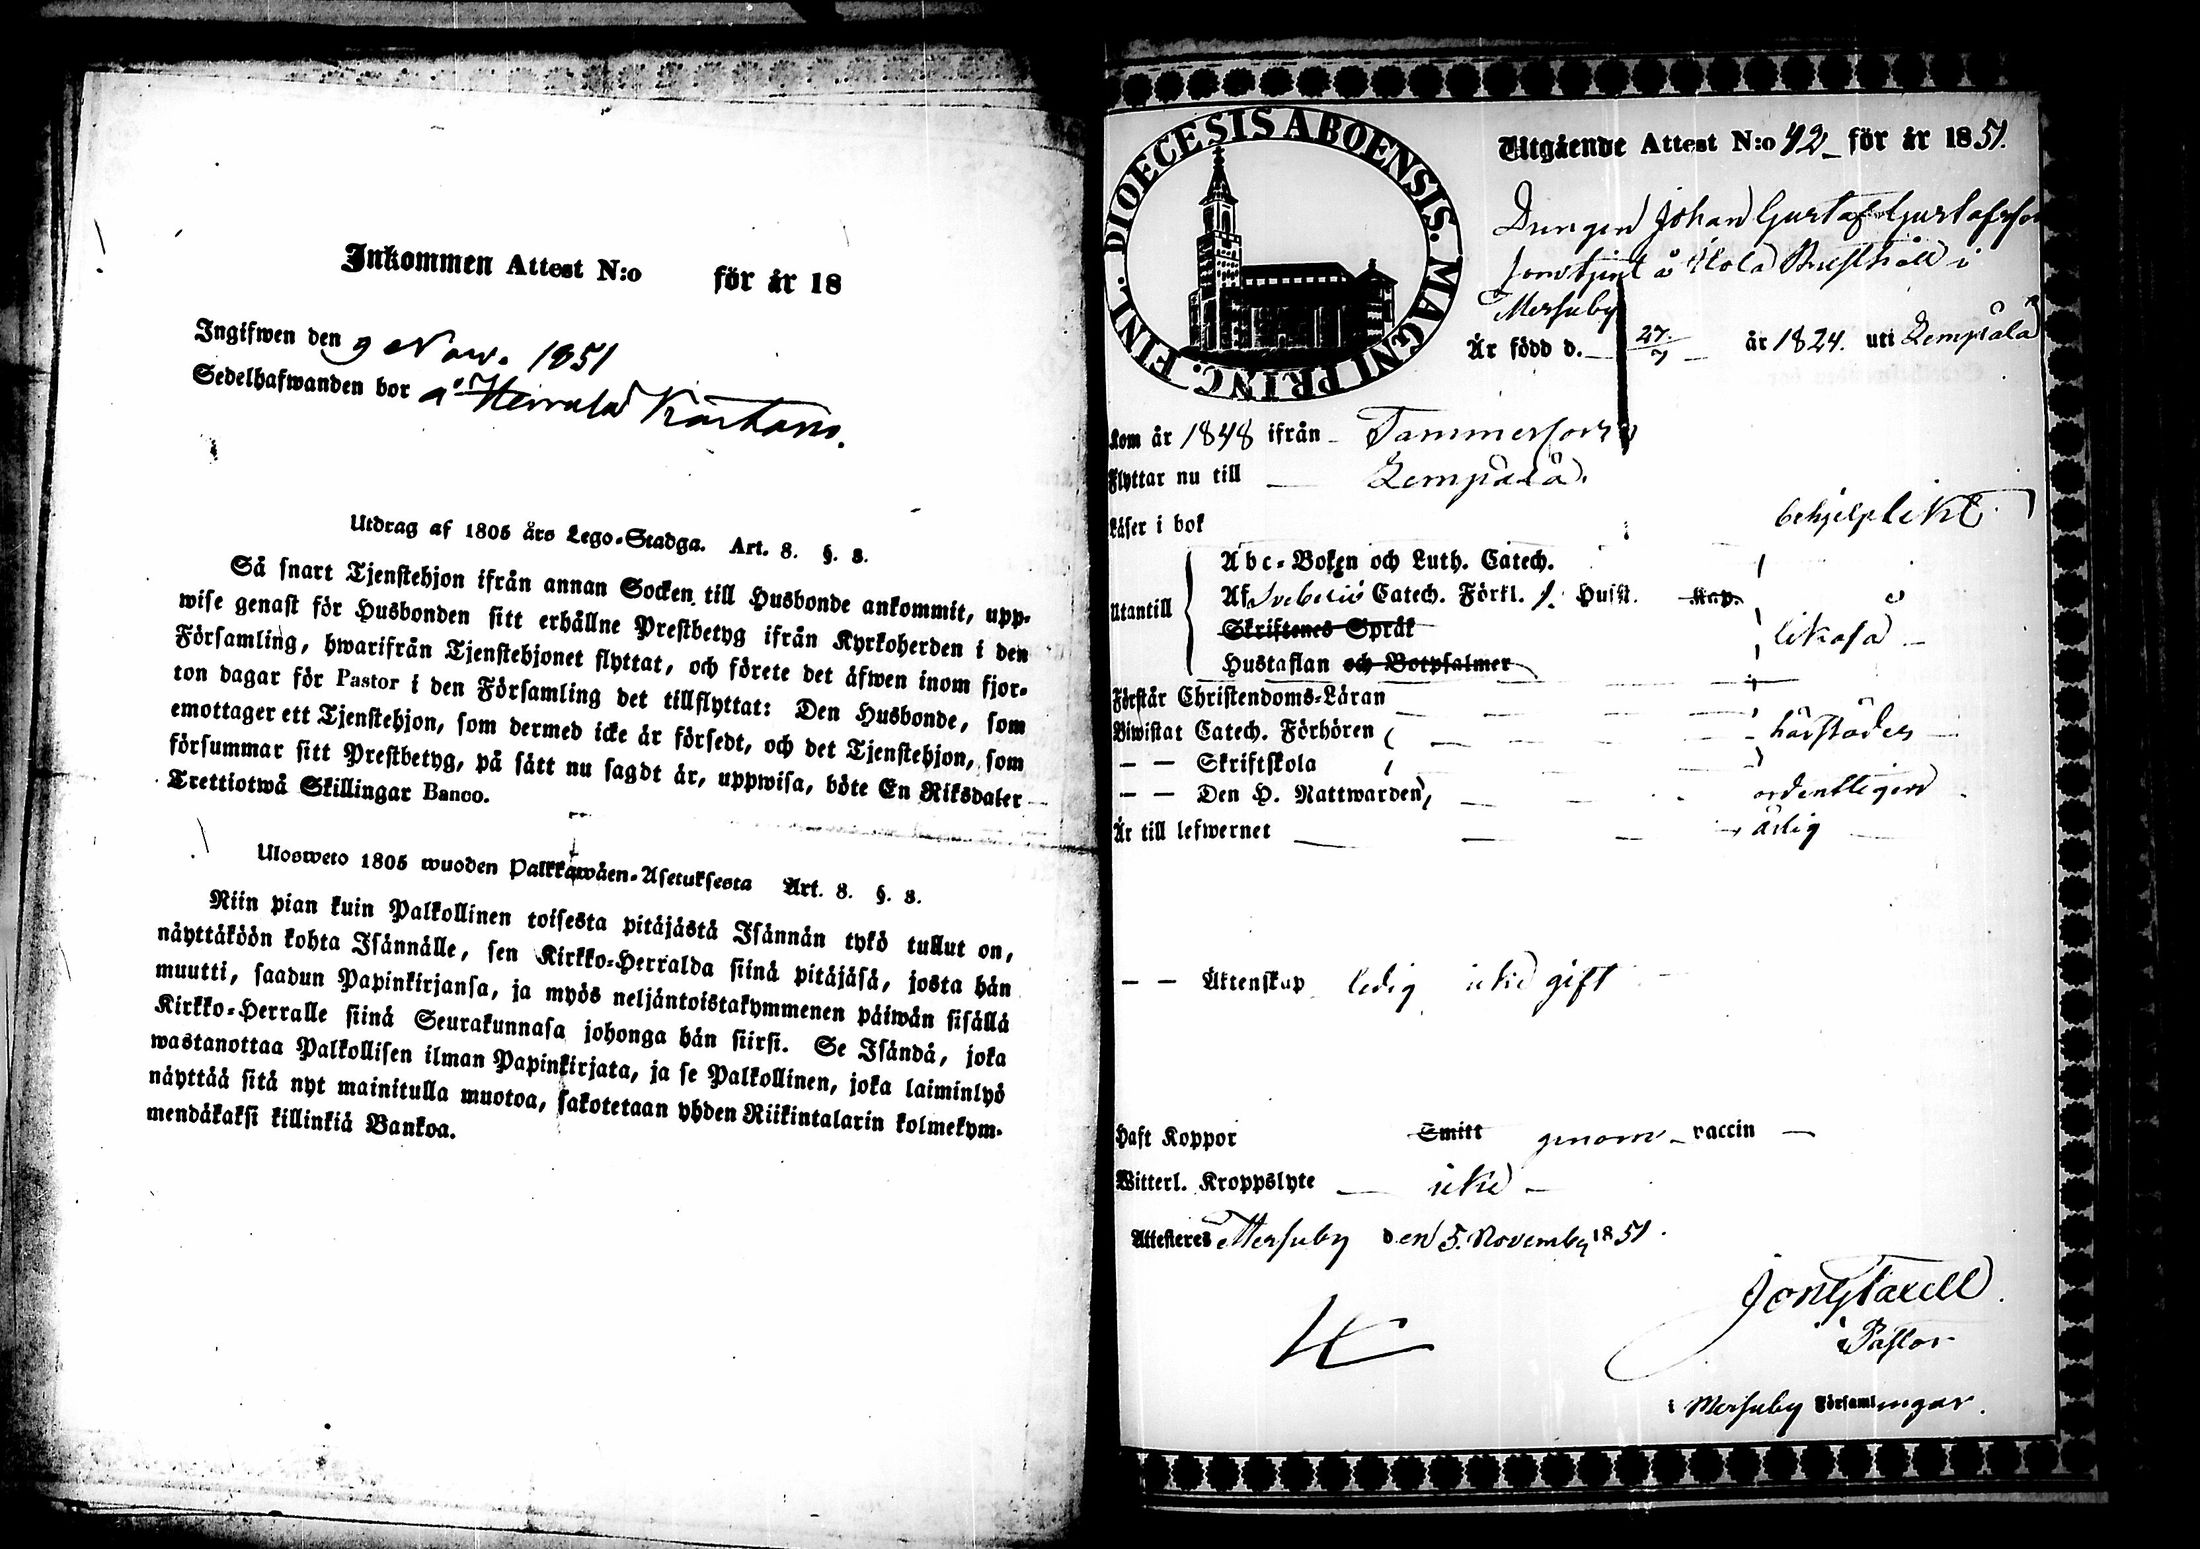 Inkommen Attest N:o för år 18
Ingifwen den 9 Nov. 1851
Sedelhafwanden bor å Herrala Kartano.
Utdrag af 1805 års Lego-Stadga. Art. 8. §. 8.
Så snart Tjenstehjon ifrån annan Socken till Husbonde ankommit, upp-
wise genast för Husbonden sitt erhållne Prestbetyg ifrån Kyrkoherden i den
Församling, hwarifrån Tjenstehjonet flyttat, och förete det äfwen inom fjor-
ton dagar för Pastor i den Församling det tillflyttat: Den Husbonde, som
emottager ett Tjenstehjon, som dermed icke är försedt, och det Tjenstehjon, som
försummar sitt Prestbetyg, på sätt nu sagdt är, uppwisa, böte En Riksdaler
Trettiotwå Skillingar Banco.
Ulosweto 1805 wuoden Palkkawäen-Asetuksesta Art. 8. §. 8.
Niin pian kuin Palkollinen toisesta pitäjästä Isännän tykö tullut on,
näyttäköön kohta Isännälle, sen Kirkko-Herralda siinä pitäjäsä, josta hän
muutti, saadun Papinkirjansa, ja myös neljäntoistakymmenen päiwän sisällä
Kirkko-Herralle siinä Seurakunnasa johonga hän siirsi. Se Isändä, joka
wastanottaa Palkollisen ilman Papinkirjata, ja se Palkollinen, joka laiminlyö
näyttää sitä nyt mainitulla muotoa, sakotetaan yhden Riikintalarin kolmekym-
mendäkaksi killinkiä Bankoa.
FINL. DIOECESIS ABOENSIS. MAGNI PRINC.
Utgående Attest N:o 42 för år 1851.
Drengen Johan Gustaf Gustafsson
som tjent å Kola Rusthåll i
Messuby
Är född d. 27/7 år 1824. uti Lempälä
Kom år 1848 ifrån Tammerfors
Flyttar nu till Lempälä.
Läser i bok behjelpligt.
Utantill
Abc-Boken och Luth. Catech.
Af Svebelii Catech. Förkl. 1. Hufst. Kap.
Skriftenes Språk likaså
Hustaflan och Botpsalmer
Förstår Christendoms-Läran
Biwistat Catech. Förhören härstädes
— — Skriftskola
— — Den H. Nattwarden ordentligen
Är till lefwernet ärlig
— — Äktenskap ledig icke gift
Haft Koppor Smitt genom vaccin
Witterl. Kroppslyte icke
Attesteres Messuby den 5. November 1851.
Pastor
i Messuby Församlingar.